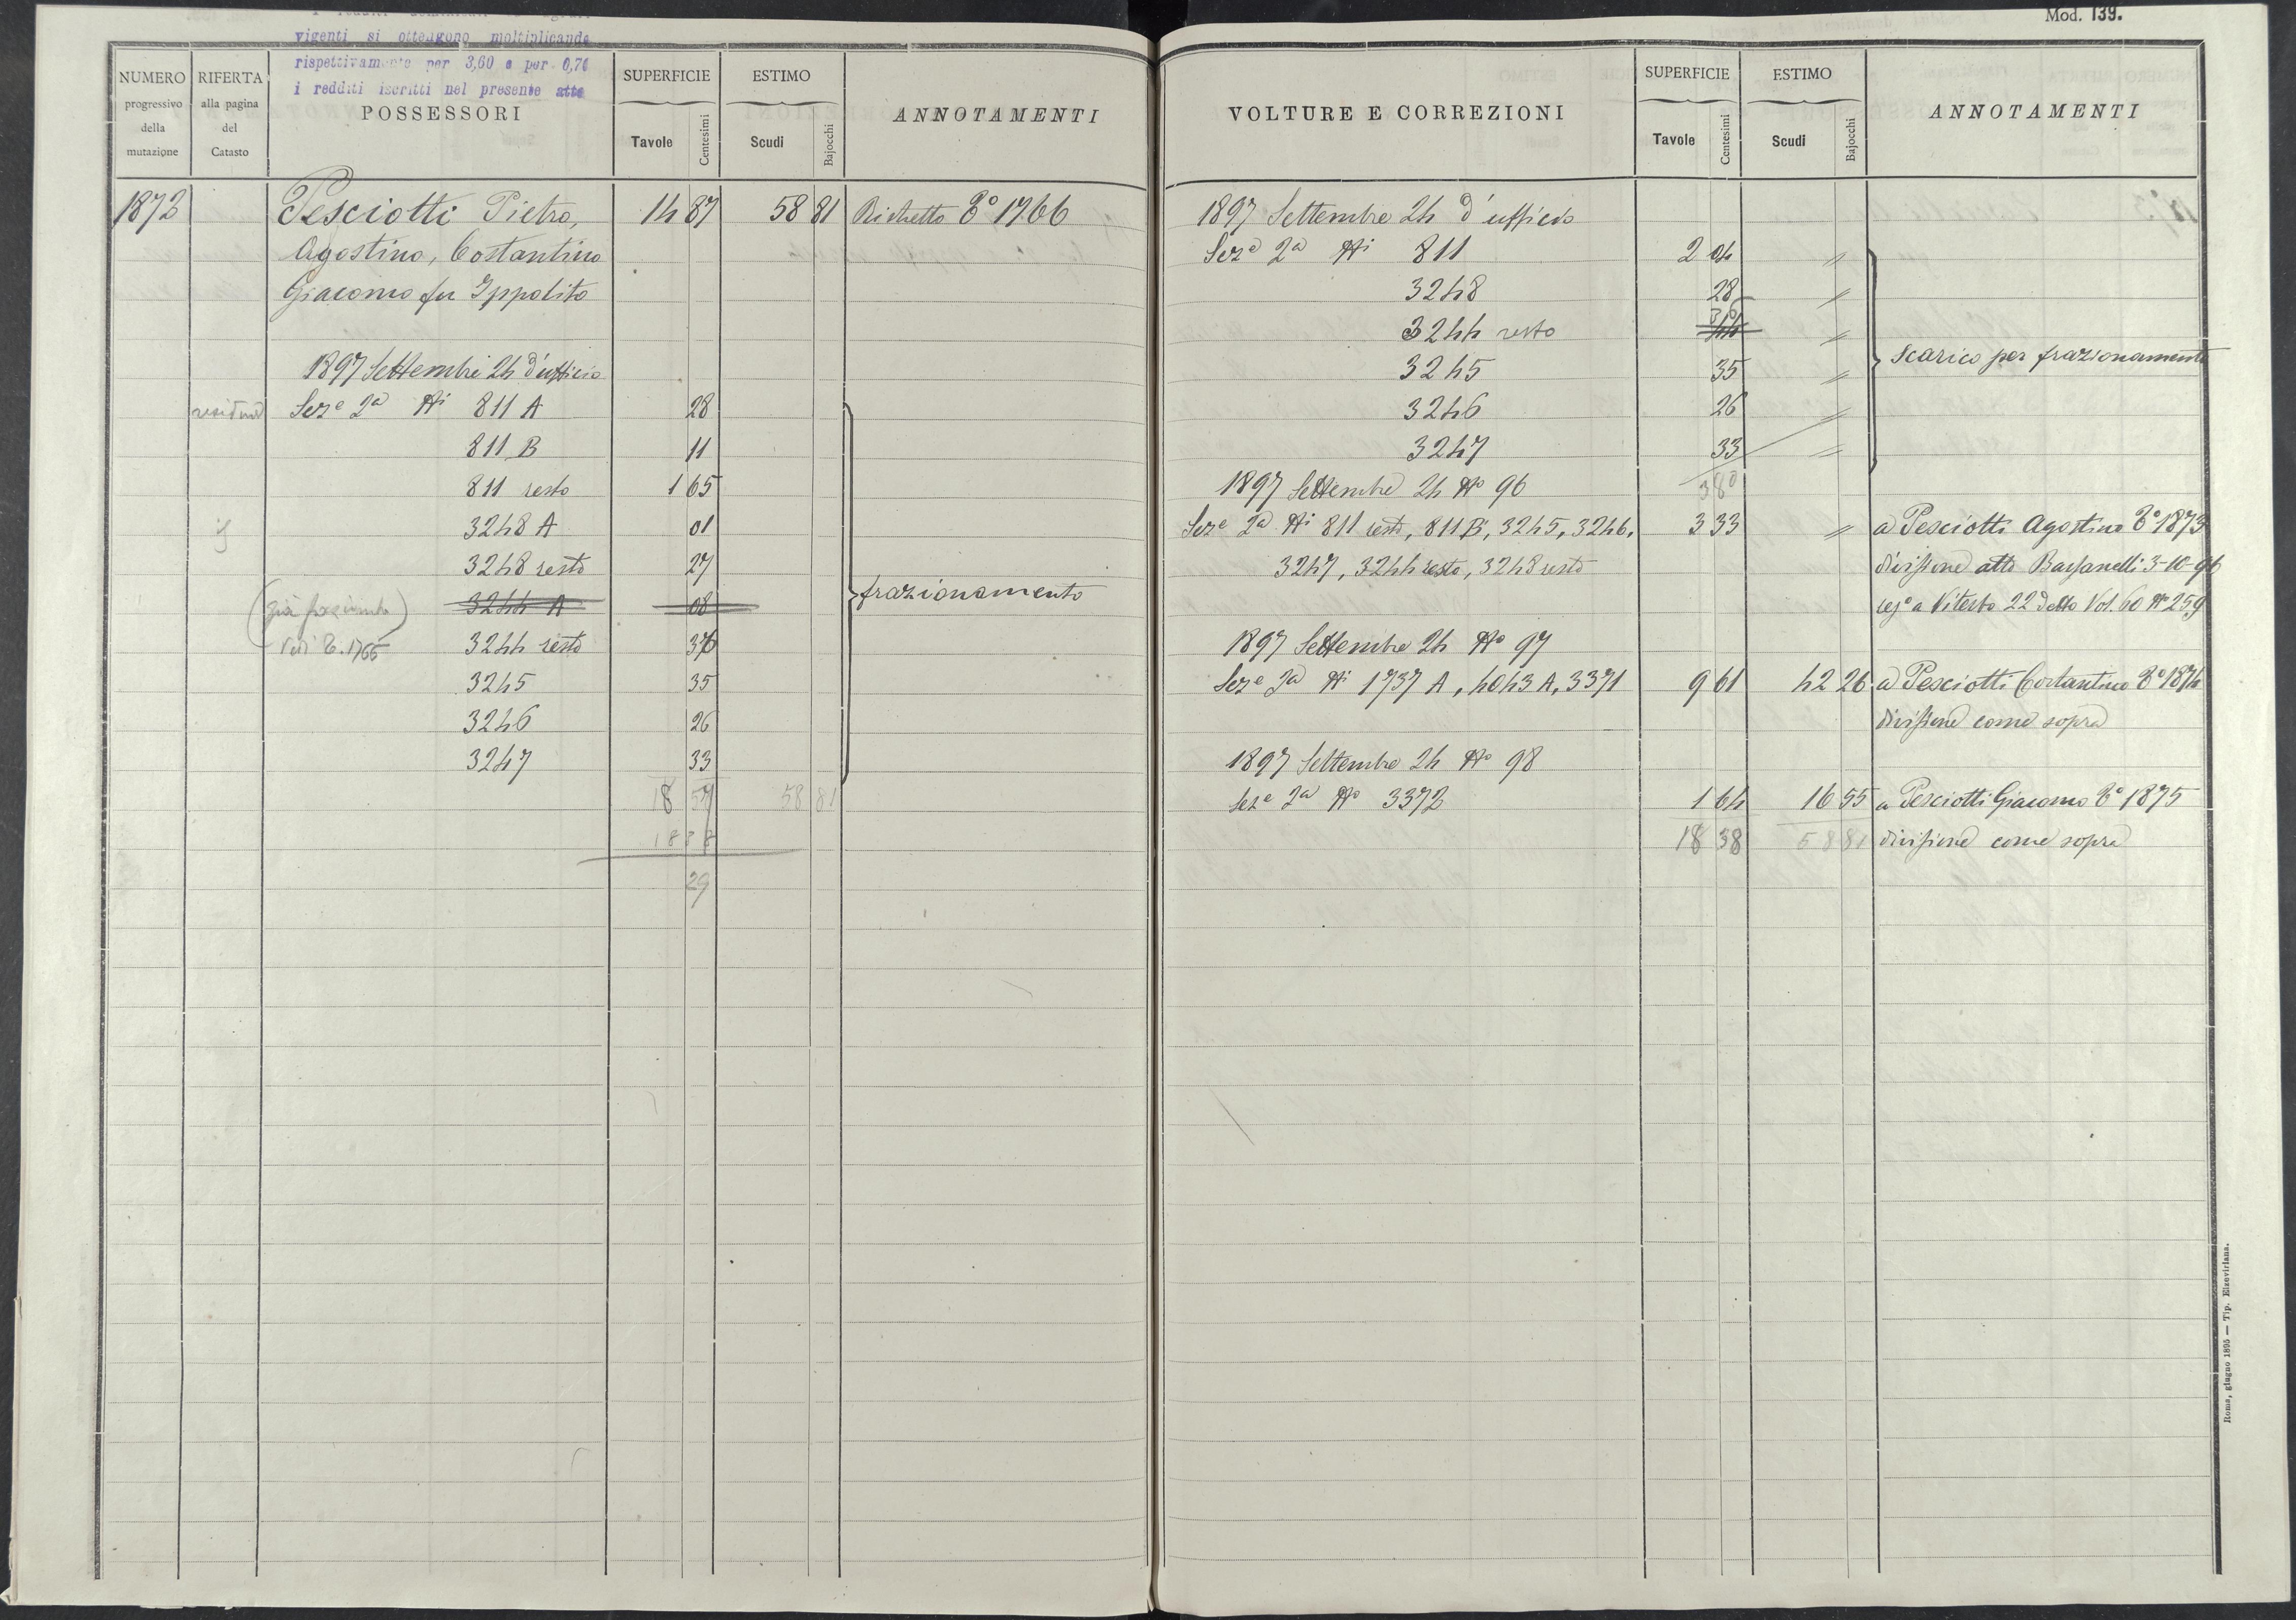 vigenti si ottengono moltiplicando
rispettivamente per 3,60 e per 0,70
i redditi iscritti nel presente atto
NUMERO progressivo della mutazione
RIFERTA alla pagina del Catasto
POSSESSORI
SUPERFICIE Tavole Centesimi
ESTIMO Scudi Bajocchi
ANNOTAMENTI
1872 Pesciotti Pietro, 14 87 58 81 Richetto T° 1766
Agostino, Costantino
Giacomo fu Ippolito
1897 Settembre 24 d'ufficio
residuo Sez.e 2a Ni 811 A 28
811 B 11
811 resto 1 65
3248 A 01
3248 resto 27
3244 A 08 frazionamento
Vedi T. 1766 3244 resto 36
3245 35
3246 26
3247 33
18 57 58 81
18 38
29
Mod. 139.
VOLTURE E CORREZIONI
SUPERFICIE Tavole Centesimi
ESTIMO Scudi Bajocchi
ANNOTAMENTI
1897 Settembre 24 d'ufficio
Sez.e 2a Ni 811 2 04 "
3248 28 "
3244 resto 36 44 "
3245 35 " scarico per frazionamento
3246 26 "
3247 33 "
1897 Settembre 24 No 96 380
Seze 2a Ni 811 resto, 811 B, 3245, 3246, 3 33 " a Pesciotti Agostino T° 1873
3247, 3244 resto, 3248 resto divisione atto Bassanelli 3-10-96
rego a Viterbo 22 detto Vol. 60 No 259
1897 Settembre 24 No 97
Seze 2a Ni 1737 A, 4043 A, 3371 9 61 42 26 a Pesciotti Costantino T° 1874
divisione come sopra
1897 Settembre 24 No 98
Seze 2a No 3372 1 64 16 55 a Pesciotti Giacomo T° 1875
18 38 58 81 divisione come sopra
Roma, giugno 1895 — Tip. Elzeviriana.